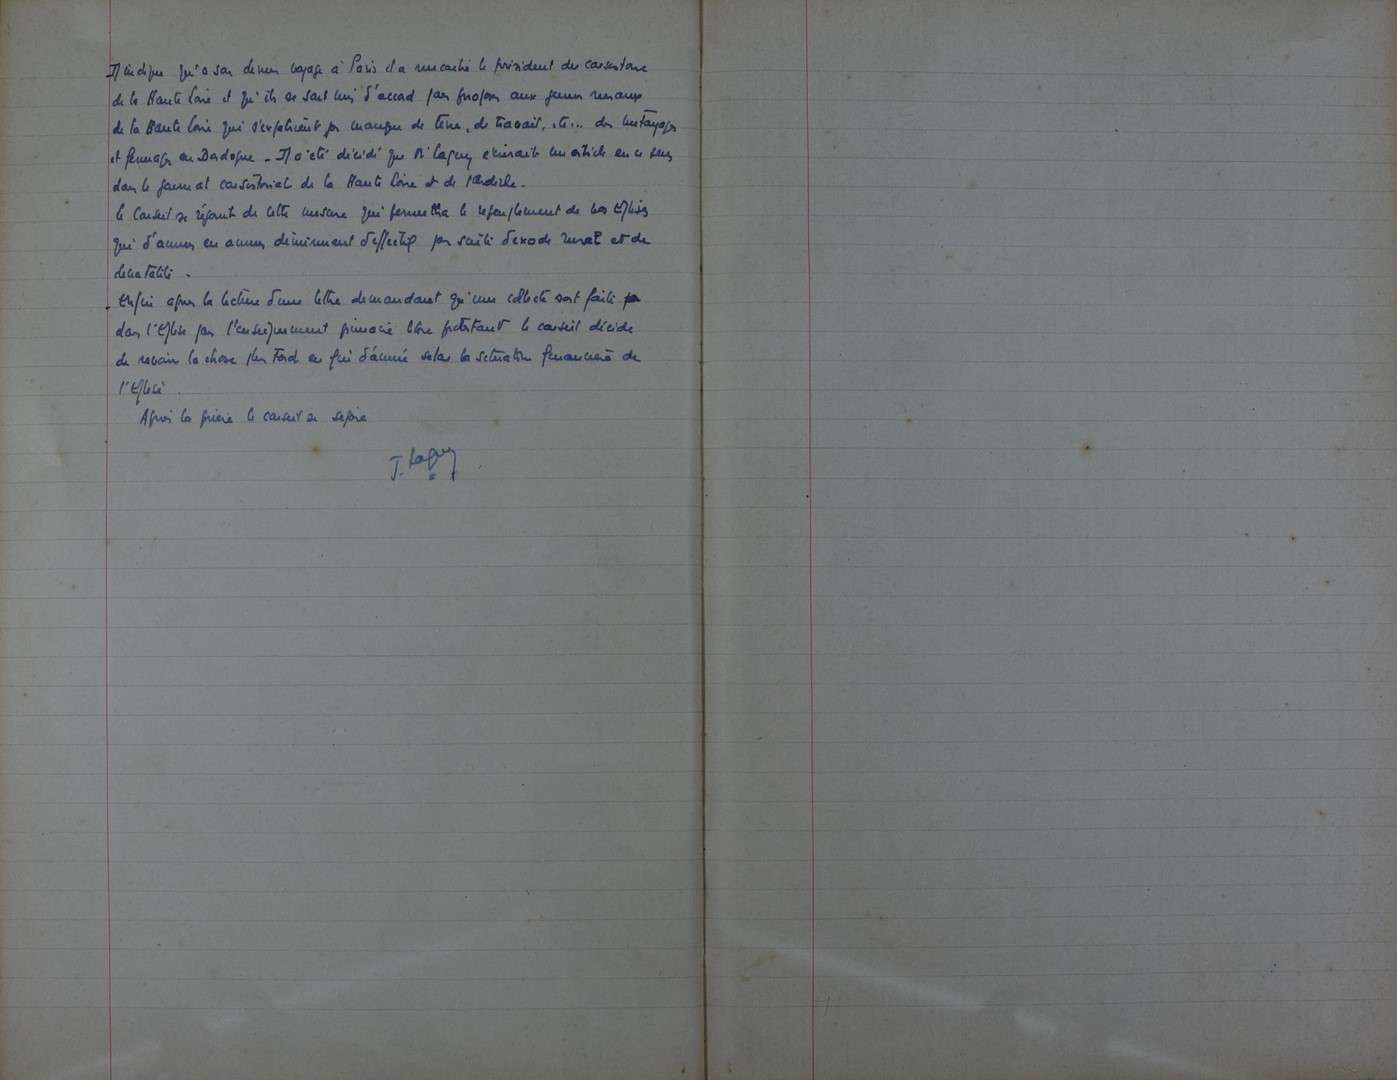 Il indique qu'a son dernier voyage à Paris il a rencontré le président du consistoire
de la Haute Loire et qu'ils se sont mis d'accord pour proposer aux jeunes ruraux
de la Haute Loire qui s'expatrient par manque de terre, de travail, etc... des métayages
et fermages en Dordogne - Il a été décidé que Mr Laguy écrirait un article en ce sens
dans le journal consistorial de la Haute Loire et de l'Ardèche.
Le Conseil se réjouit de cette mesure qui permettra le repeuplement de nos Eglises
qui d'années en années diminuent d'effectif par suite d'exode rural et de
denatalité .
Enfin après la lecture d'une lettre demandant qu'une collecte soit faite
dans l'Eglise pour l'enseignement primaire libre protestant le conseil décide
de revoir la chose plus Tard en fin d'année selon la situation financière de
l'Eglise .
Après la prière le conseil se sépare
J. Laguy